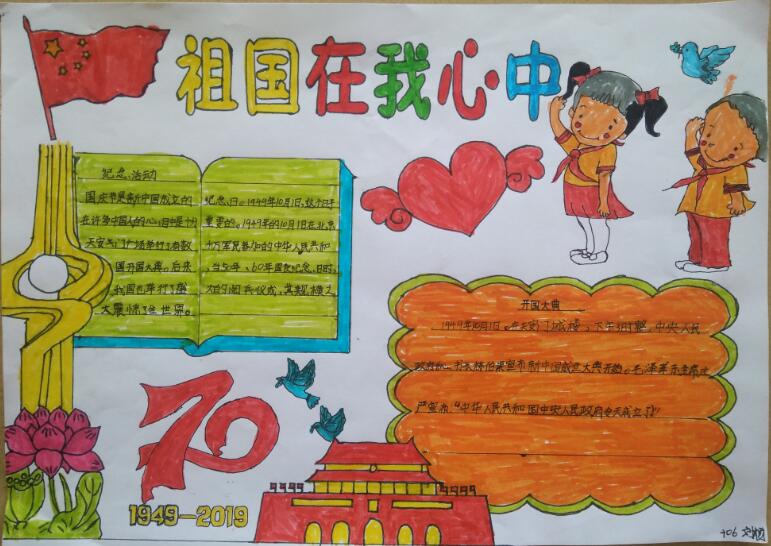 祖国在我心中
纪念活动
国庆节是新中国成立的 纪念日。1949年10月1日,这个日子
在许多中国人的心目中是十分 重要的。1949年的10月1日在北京
天安门广场举行了有数 十万军民参加的中华人民共和
国开国大典。后来 ,当50年、60年国庆纪念日时,
我国也举行了盛 大的阅兵仪式,其规模之
大震惊了全世界。
开国大典
1949年10月1日。在天安门城楼,下午3时整,中央人民
书长林伯渠宣布新中国成立大典开始。毛泽东主席庄
严宣布“中华人民共和国中央人民政府今天成立了!”
70
1949-2019
406